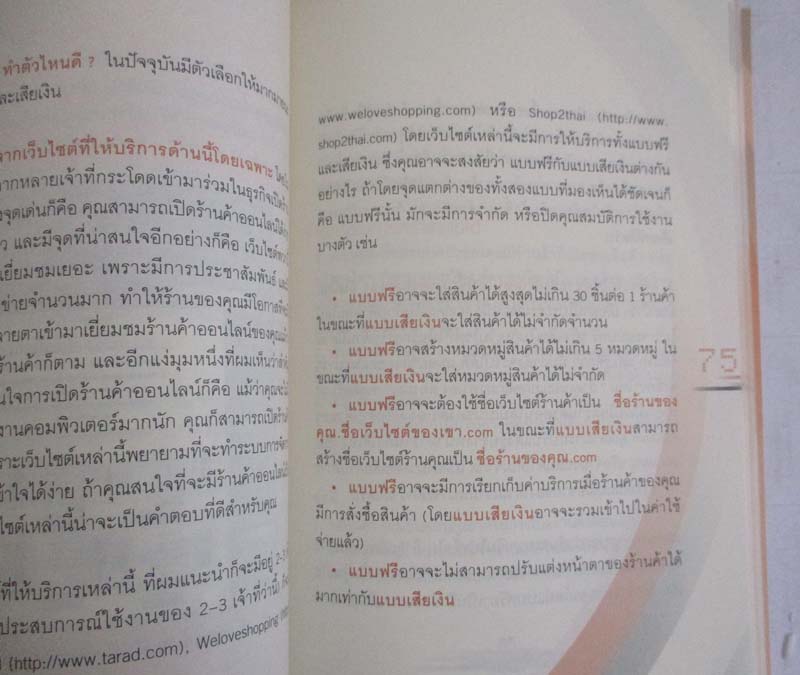 ทำตัวไหนดี ? ในปัจจุบันมีตัวเลือกให้มากมาย
ละเสียเงิน
ากเว็บไซต์ที่ให้บริการด้านนี้โดยเฉพาะ
ากหลายเจ้าที่กระโดดเข้ามาร่วมในธุรกิจเปิดร้า
จุดเด่นก็คือ คุณสามารถเปิดร้านค้าออนไลน์ได้
ว และมีจุดที่น่าสนใจอีกอย่างก็คือ เว็บไซต์
เยี่ยมชมเยอะ เพราะมีการประชาสัมพันธ์ และ
ข่ายจำนวนมาก ทำให้ร้านของคุณมีโอกาส
ลายตาเข้ามาเยี่ยมชมร้านค้าออนไลน์ของคุณ
ร้านค้าก็ตาม และอีกแง่มุมหนึ่งที่ผมเห็นว่า
นใจการเปิดร้านค้าออนไลน์ก็คือ แม้ว่าคุณจะ
งานคอมพิวเตอร์มากนัก คุณก็สามารถเปิดร้าน
ราะเว็บไซต์เหล่านี้พยายามที่จะทำระบบการจัด
ข้าใจได้ง่าย ถ้าคุณสนใจที่จะมีร้านค้าออนไลน์
ไซต์เหล่านี้น่าจะเป็นคำตอบที่ดีสำหรับคุณ
ที่ให้บริการเหล่านี้ ที่ผมแนะนำก็จะมีอยู่ 2-3
ประสบการณ์ใช้งานของ 2-3 เจ้าที่ว่านี้
(http://www.tarad.com), Weloveshopping
www.weloveshopping.com) หรือ Shop2thai (http://www.
shop2thai.com) โดยเว็บไซต์เหล่านี้จะมีการให้บริการทั้งแบบฟรี
และเสียเงิน ซึ่งคุณอาจจะสงสัยว่า แบบฟรีกับแบบเสียเงินต่างกัน
อย่างไร ถ้าโดยจุดแตกต่างของทั้งสองแบบที่มองเห็นได้ชัดเจนก็
คือ แบบฟรีนั้น มักจะมีการจำกัด หรือปิดคุณสมบัติการใช้งาน
บางตัว เช่น
• แบบฟรีอาจจะใส่สินค้าได้สูงสุดไม่เกิน 30 ชิ้นต่อ 1 ร้านค้า
ในขณะที่แบบเสียเงินจะใส่สินค้าได้ไม่จำกัดจำนวน
• แบบฟรีอาจสร้างหมวดหมู่สินค้าได้ไม่เกิน 5 หมวดหมู่ ใน
ขณะที่แบบเสียเงินจะใส่หมวดหมู่สินค้าได้ไม่จำกัด
75
• แบบฟรีอาจจะต้องใช้ชื่อเว็บไซต์ร้านค้าเป็น ชื่อร้านของ
คุณ.ชื่อเว็บไซต์ของเขา.com ในขณะที่แบบเสียเงินสามารถ
สร้างชื่อเว็บไซต์ร้านคุณเป็น ชื่อร้านของคุณ.com
• แบบฟรีอาจจะมีการเรียกเก็บค่าบริการเมื่อร้านค้าของคุณ
มีการสั่งซื้อสินค้า (โดยแบบเสียเงินอาจจะรวมเข้าไปในค่าใช้
จ่ายแล้ว)
• แบบฟรีอาจจะไม่สามารถปรับแต่งหน้าตาของร้านค้าได้
มากเท่ากับแบบเสียเงิน